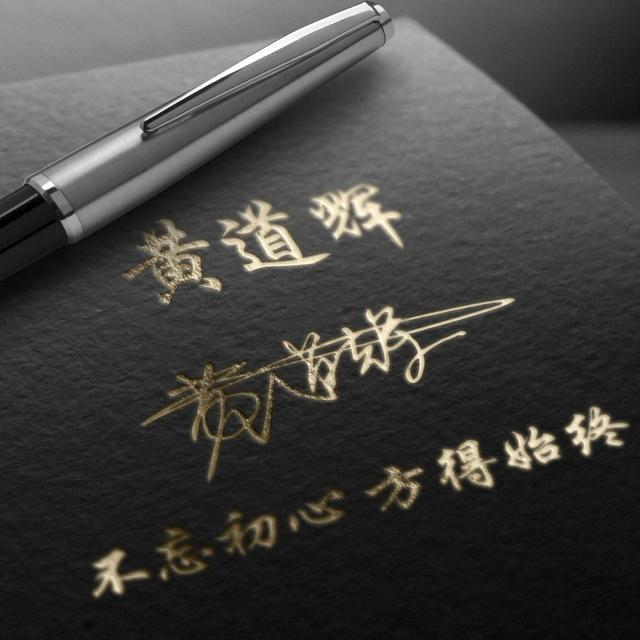 黄道辉
黄道辉
不忘初心 方得始终